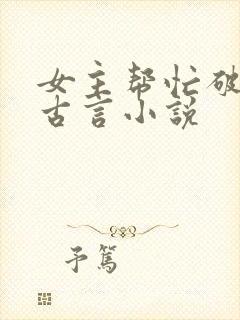 女主帮忙破
古言小说
予笃